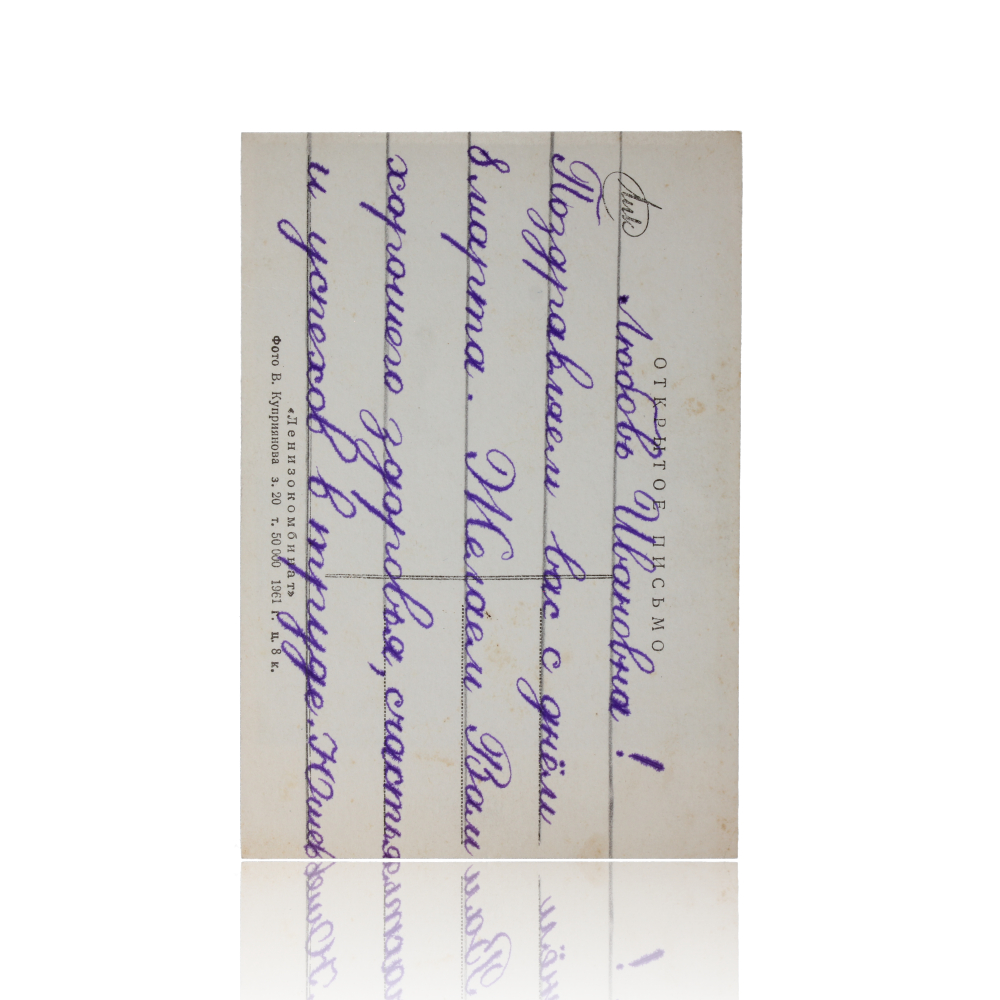 Лик
ОТКРЫТОЕ ПИСЬМО
Любовь Ивановна!
Поздравляем вас с днём
8 марта. Желаем Вам
хорошего здоровья, счастья
и успехов в труде.
«Ленизокомбинат»
Фото В. Куприянова з. 20 т. 50 000 1961 г. ц. 8 к.